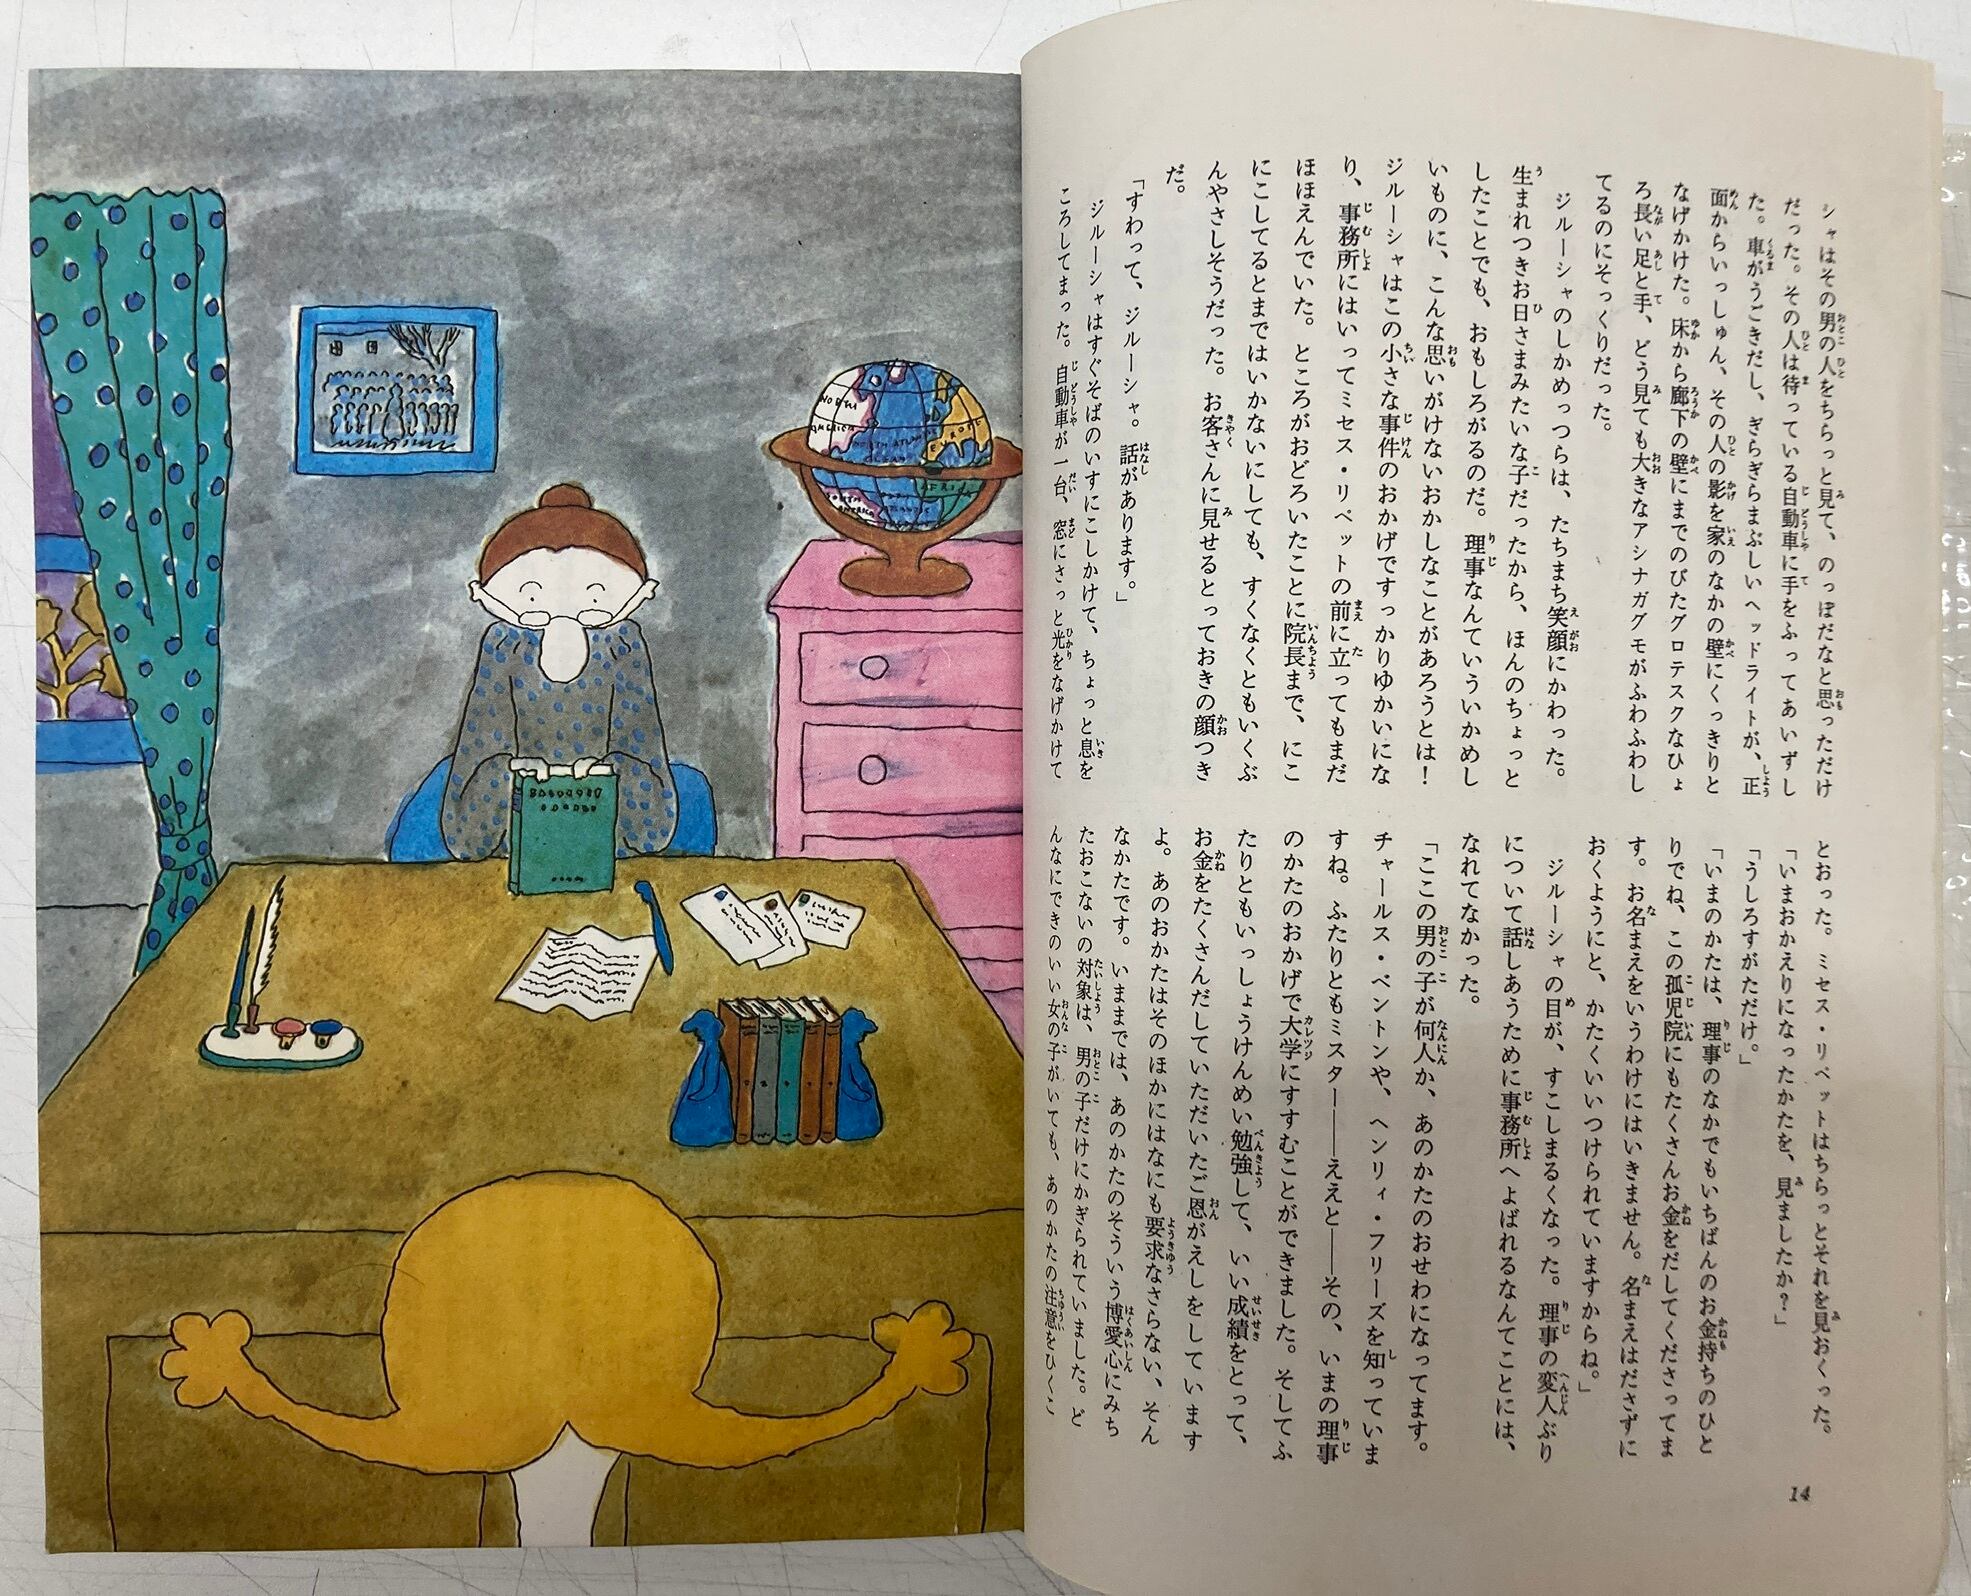 シャはその男の人をちらっと見て、のっぽだなと思っただけ
だった。その人は待っている自動車に手をふってあいずし
た。車がうごきだし、ぎらぎらまぶしいヘッドライトが、正
面からいっしゅん、その人の影を家のなかの壁にくっきりと
なげかけた。床から廊下の壁にまでのびたグロテスクなひょ
ろ長い足と手、どう見ても大きなアシナガグモがふわふわし
てるのにそっくりだった。
ジルーシャのしかめっつらは、たちまち笑顔にかわった。
生まれつきお日さまみたいな子だったから、ほんのちょっと
したことでも、おもしろがるのだ。理事なんていういかめし
いものに、こんな思いがけないおかしなことがあろうとは！
ジルーシャはこの小さな事件のおかげですっかりゆかいにな
り、事務所にはいってミセス・リペットの前に立ってもまだ
ほほえんでいた。ところがおどろいたことに院長まで、にこ
にこしてるとまではいかないにしても、すくなくともいくぶ
んやさしそうだった。お客さんに見せるとっておきの顔つき
だ。
「すわって、ジルーシャ。話があります。」
ジルーシャはすぐそばのいすにこしかけて、ちょっと息を
ころしてまった。自動車が一台、窓にさっと光をなげかけて
とおった。ミセス・リペットはちらっとそれを見おくった。
「いまおかえりになったかたを、見ましたか？」
「うしろすがただけ。」
「いまのかたは、理事のなかでもいちばんのお金持ちのひと
りでね、この孤児院にもたくさんお金をだしてくださってま
す。お名まえをいうわけにはいきません。名まえはださずに
おくようにと、かたくいいつけられていますからね。」
ジルーシャの目が、すこしまるくなった。理事の変人ぶり
について話しあうために事務所へよばれるなんてことには、
なれてなかった。
「ここの男の子が何人か、あのかたのおせわになってます。
チャールス・ベントンや、ヘンリィ・フリーズを知っていま
すね。ふたりともミスター――ええと――その、いまの理事
のかたのおかげで大学にすすむことができました。そしてふ
たりともいっしょうけんめい勉強して、いい成績をとって、
お金をたくさんだしていただいたご恩がえしをしています
よ。あのおかたはそのほかにはなにも要求なさらない、そん
なかたです。いままでは、あのかたのそういう博愛心にみち
たおこないの対象は、男の子だけにかぎられていました。ど
んなにできのいい女の子がいても、あのかたの注意をひくこ
14
NORTH
AMERICA
NORTH ATLANTIC
OCEAN
EUROPE
AFRICA
SOUTH
AMERICA